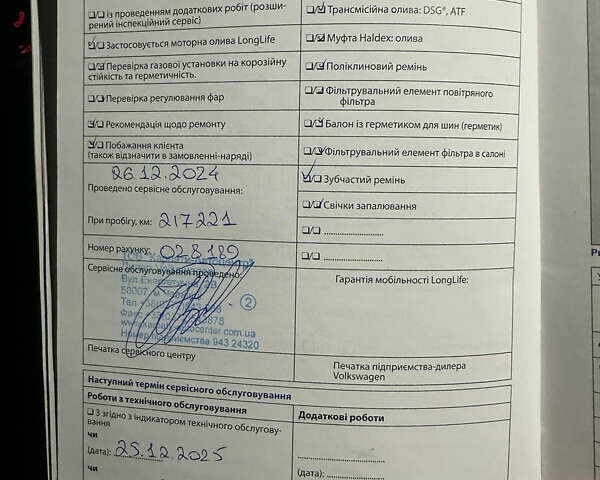 ❏/❏ із проведенням додаткових робіт (розши-
рений інспекційний сервіс)
❏/❏ Застосовується моторна олива LongLife
❏/❏ Перевірка газової установки на корозійну
стійкість та герметичність.
❏/❏ Перевірка регулювання фар
❏/❏ Рекомендація щодо ремонту
❏/❏ Побажання клієнта
(також відзначити в замовленні-наряді)
26.12.2024
Проведено сервісне обслуговування:
При пробігу, км: 217221
Номер рахунку: 028189
Сервісне обслуговування проведено:
58007
②
www. center.com.ua
Номер підприємства 943 24320
Печатка сервісного центру
❏/❏ Трансмісійна олива: DSG®, ATF
❏/❏ Муфта Haldex: олива
❏/❏ Поліклиновий ремінь
❏/❏ Фільтрувальний елемент повітряного
фільтра
❏/❏ Балон із герметиком для шин (герметик)
❏/❏ Фільтрувальний елемент фільтра в салоні
❏/❏ Зубчастий ремінь
❏/❏ Свічки запалювання
❏/❏ ........................
❏/❏ ........................
Гарантія мобільності LongLife:
Печатка підприємства-дилера
Volkswagen
Наступний термін сервісного обслуговування
Роботи з технічного обслуговування
❏ З згідно з індикатором технічного обслугову-
вання
чи
(дата): 25.12.2025
чи
Додаткові роботи
........................
(дата): ........................